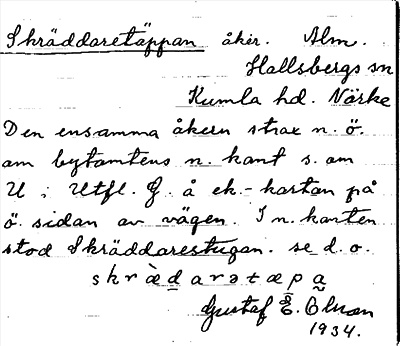 Skräddaretäppan åker. Alm.
Hallsbergs sn
Kumla hd. Närke
Den ensamma åkern strax n. ö.
om bytomtens n. kant s. om
U i Utfl. G. å ek.-kartan på
ö. sidan av vägen. I n. kanten
stod Skräddarestugan. se d. o.
skræ̀darətæpa̰
Gustaf E. Olsson
1934.